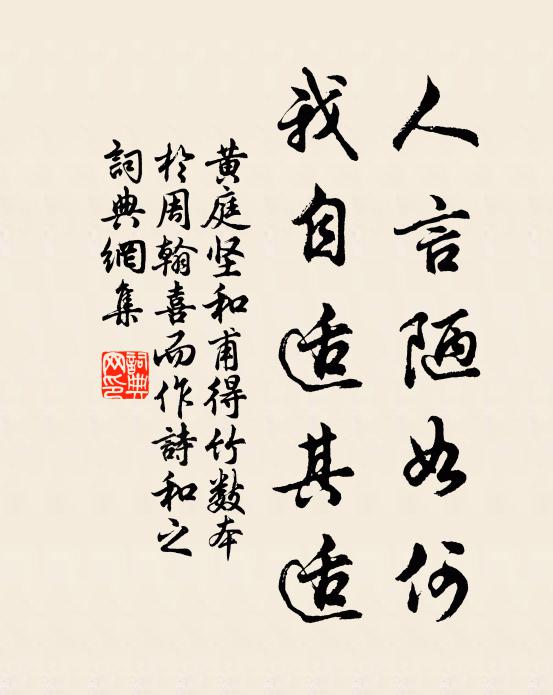 人言陋如何
我自适其适
黄庭坚和甫得竹数本
於周翰喜而作詩和之
詞典網集
詞典
网印